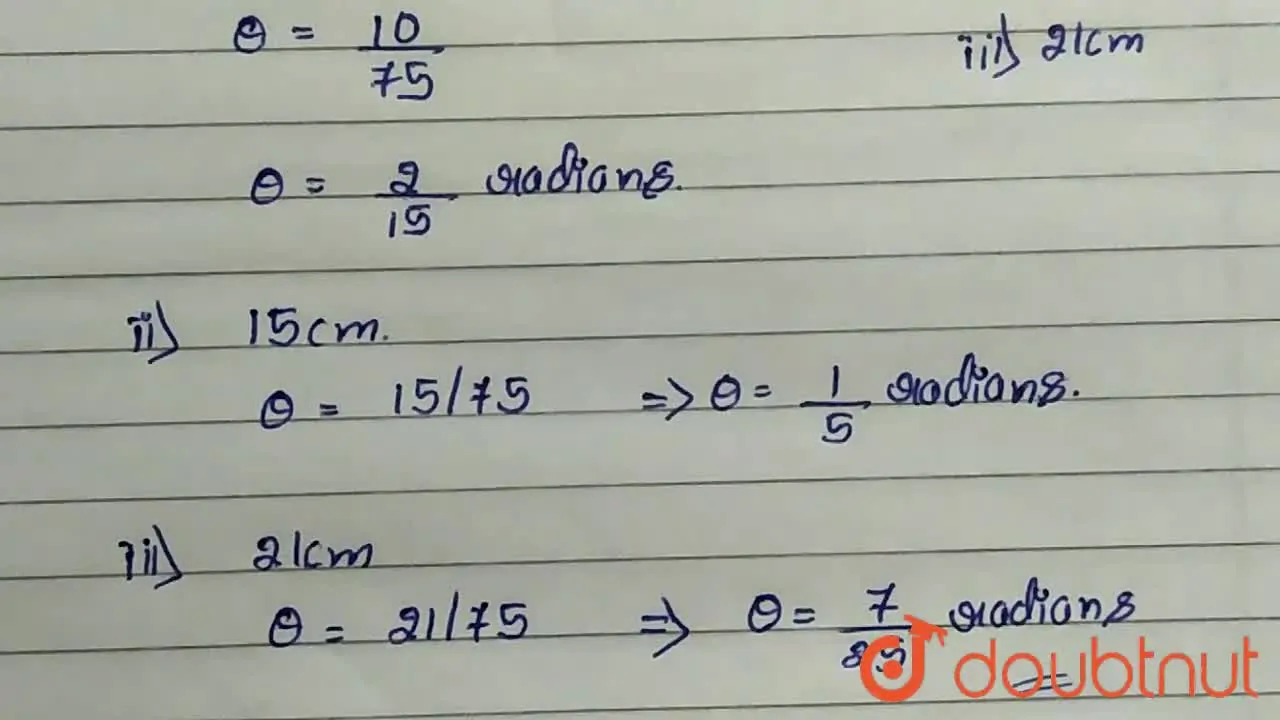 θ = 10/75
iii) 21cm
θ = 2/15 radians.
ii) 15cm.
θ = 15/75 => θ = 1/5 radians.
iii) 21cm
θ = 21/75 => θ = 7/25 radians
doubtnut